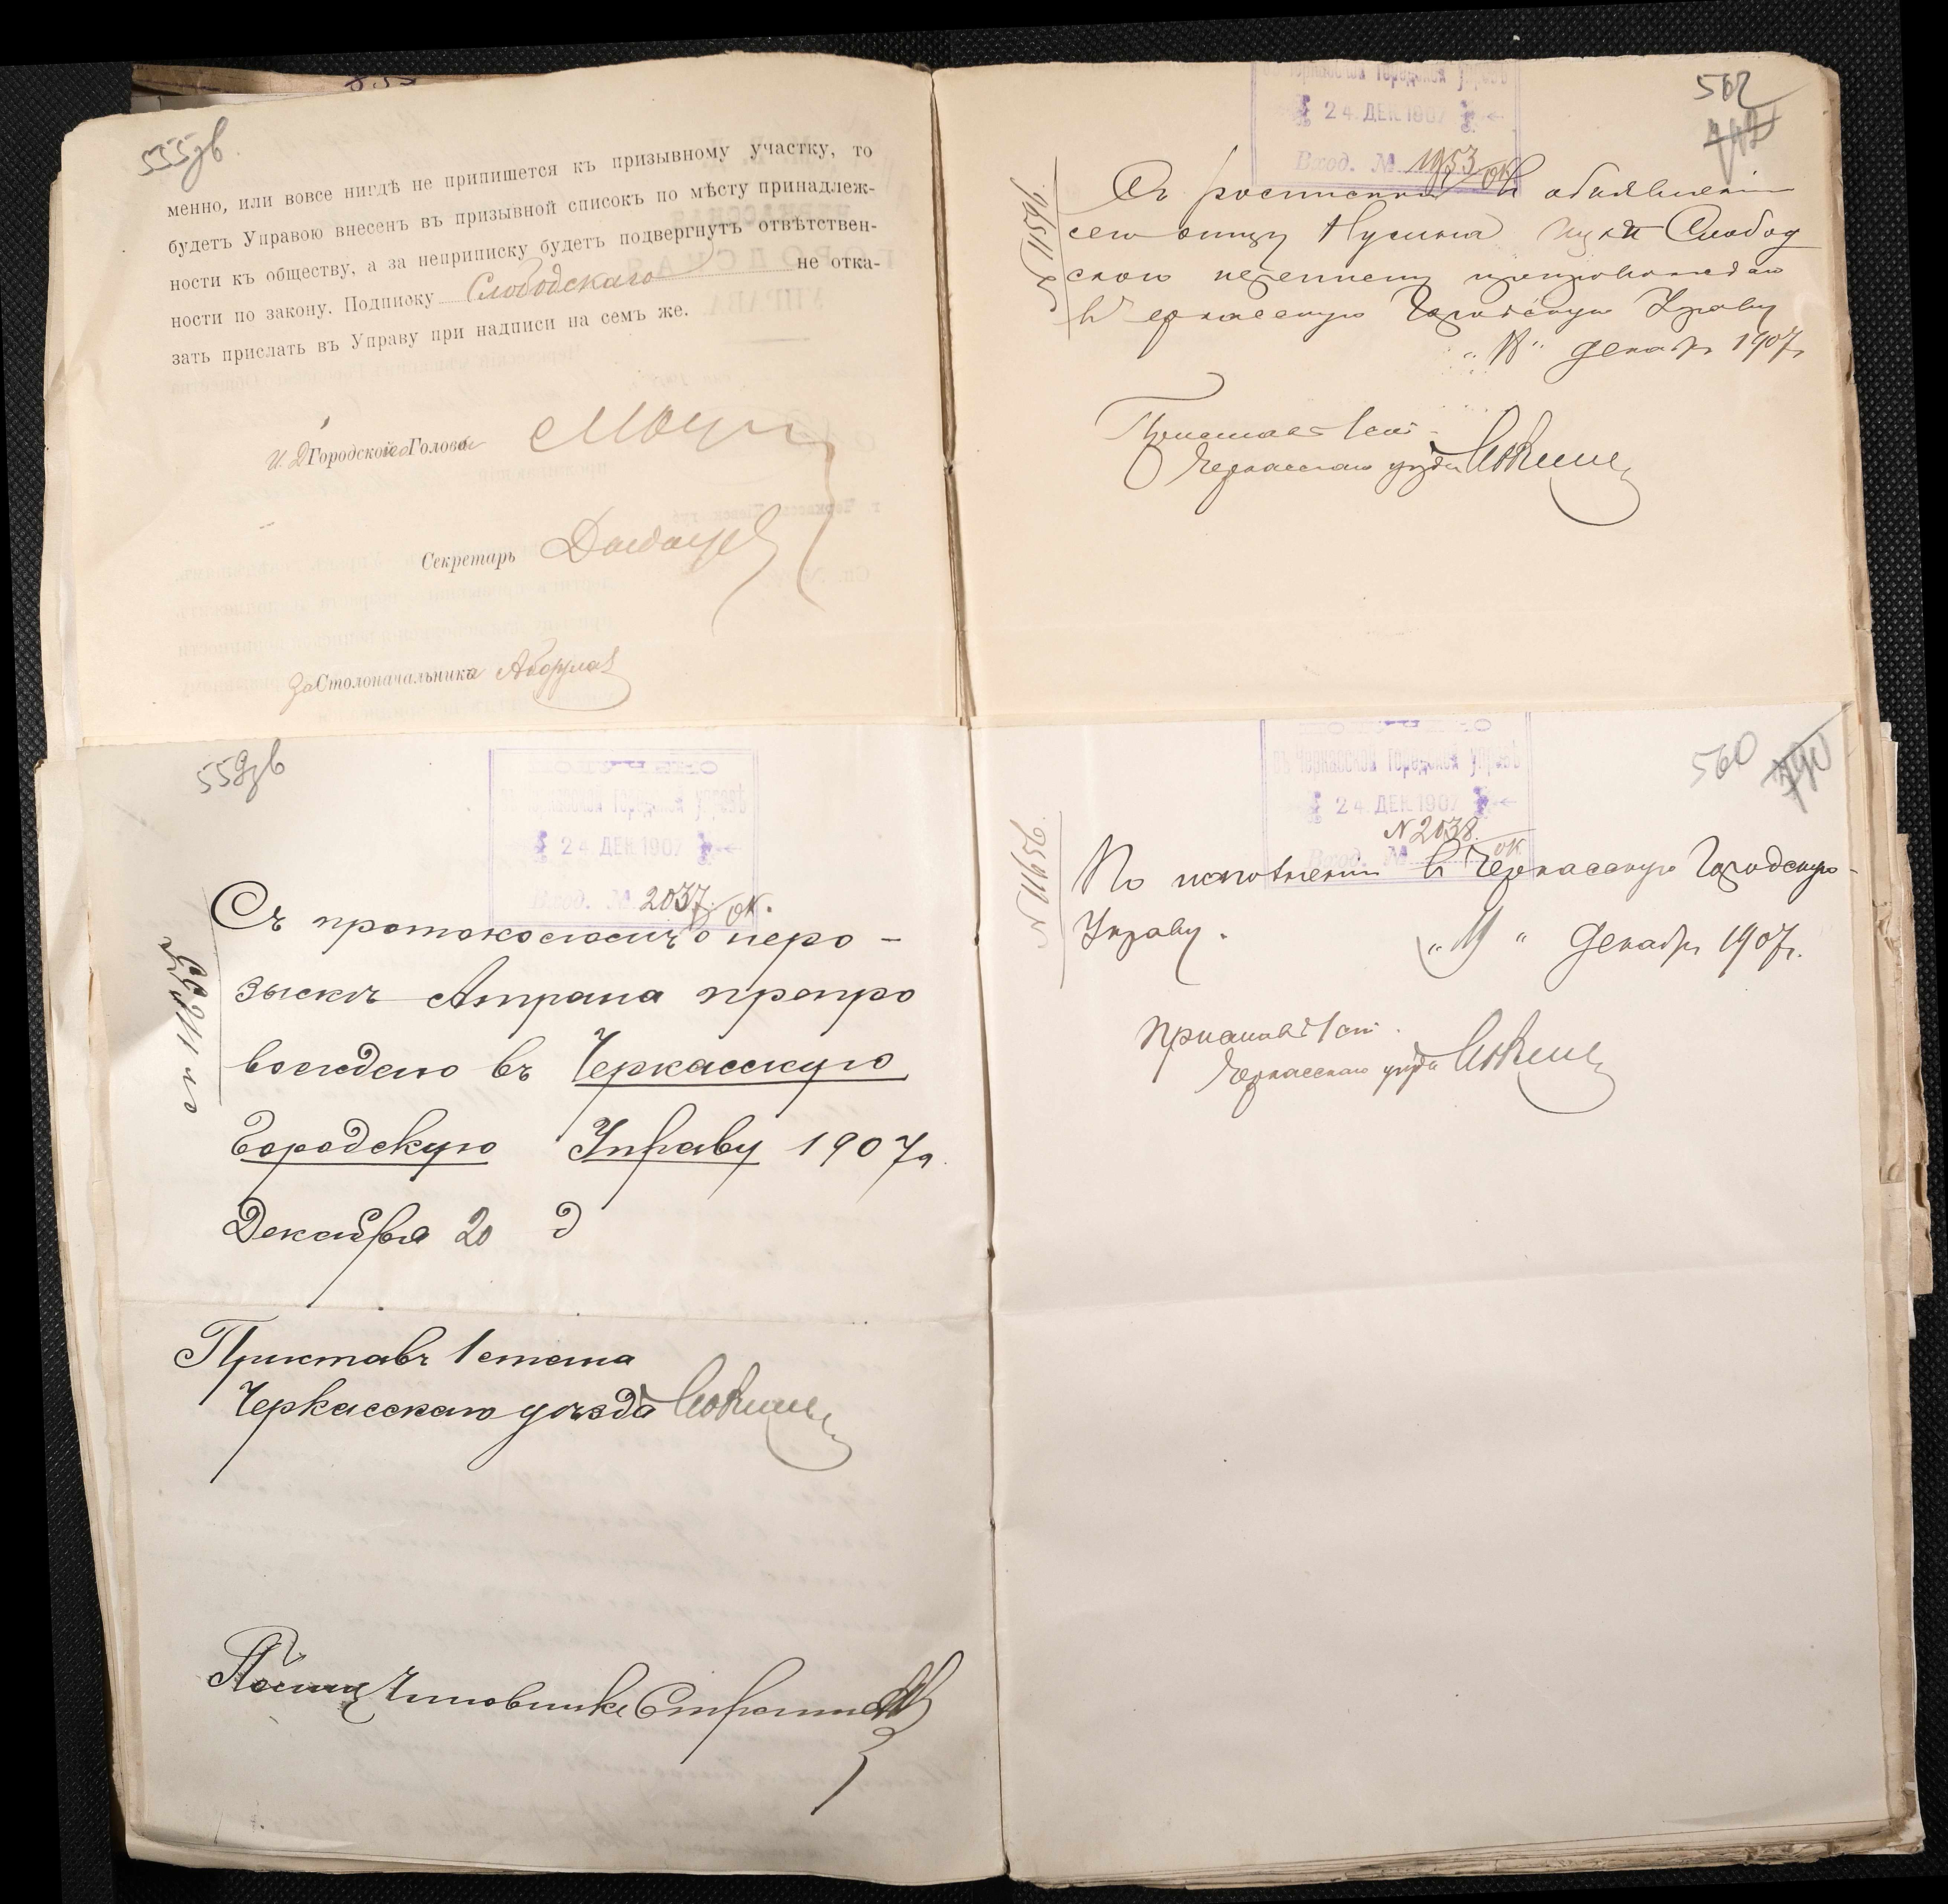 555зв
менно, или вовсе нигдѣ не припишется къ призывному участку, то
будетъ Управою внесенъ въ призывной списокъ по мѣсту принадлеж-
ности къ обществу, а за неприписку будетъ подвергнутъ отвѣтствен-
ности по закону. Подписку Слободскаго не отка-
зать прислать въ Управу при надписи на семъ же.
И. Д. Городского Головы
Секретарь
За Столоначальника
562
742
въ Черкасской Городской Управѣ
24 ДЕК. 1907
Вход. № 1953 ОК
Съ росписки въ объявленіи
сего отцу Нусина Ицки Слобод
скаго
въ Черкасскую Городскую Управу
декабря 1907 г.
Приставъ 1 ст.
Черкасскаго уѣзда
559зв
въ Черкасской Городской Управѣ
24 ДЕК. 1907
Вход. № 2037 ОК.
№ 11655
Съ протоколомъ о не ро-
зыскѣ Атрана препро
вождено въ Черкасскую
Городскую Управу 1907 г.
Декабря 20 д
Приставъ 1 стана
Черкасскаго уѣзда
560
въ Черкасской Городской Управѣ
24 ДЕК. 1907
Вход. № 2038 ОК
№ 11656
По исполненіи въ Черкасскую Городскую
Управу.
декабря 1907 г.
Приставъ 1 ст.
Черкасскаго уѣзда